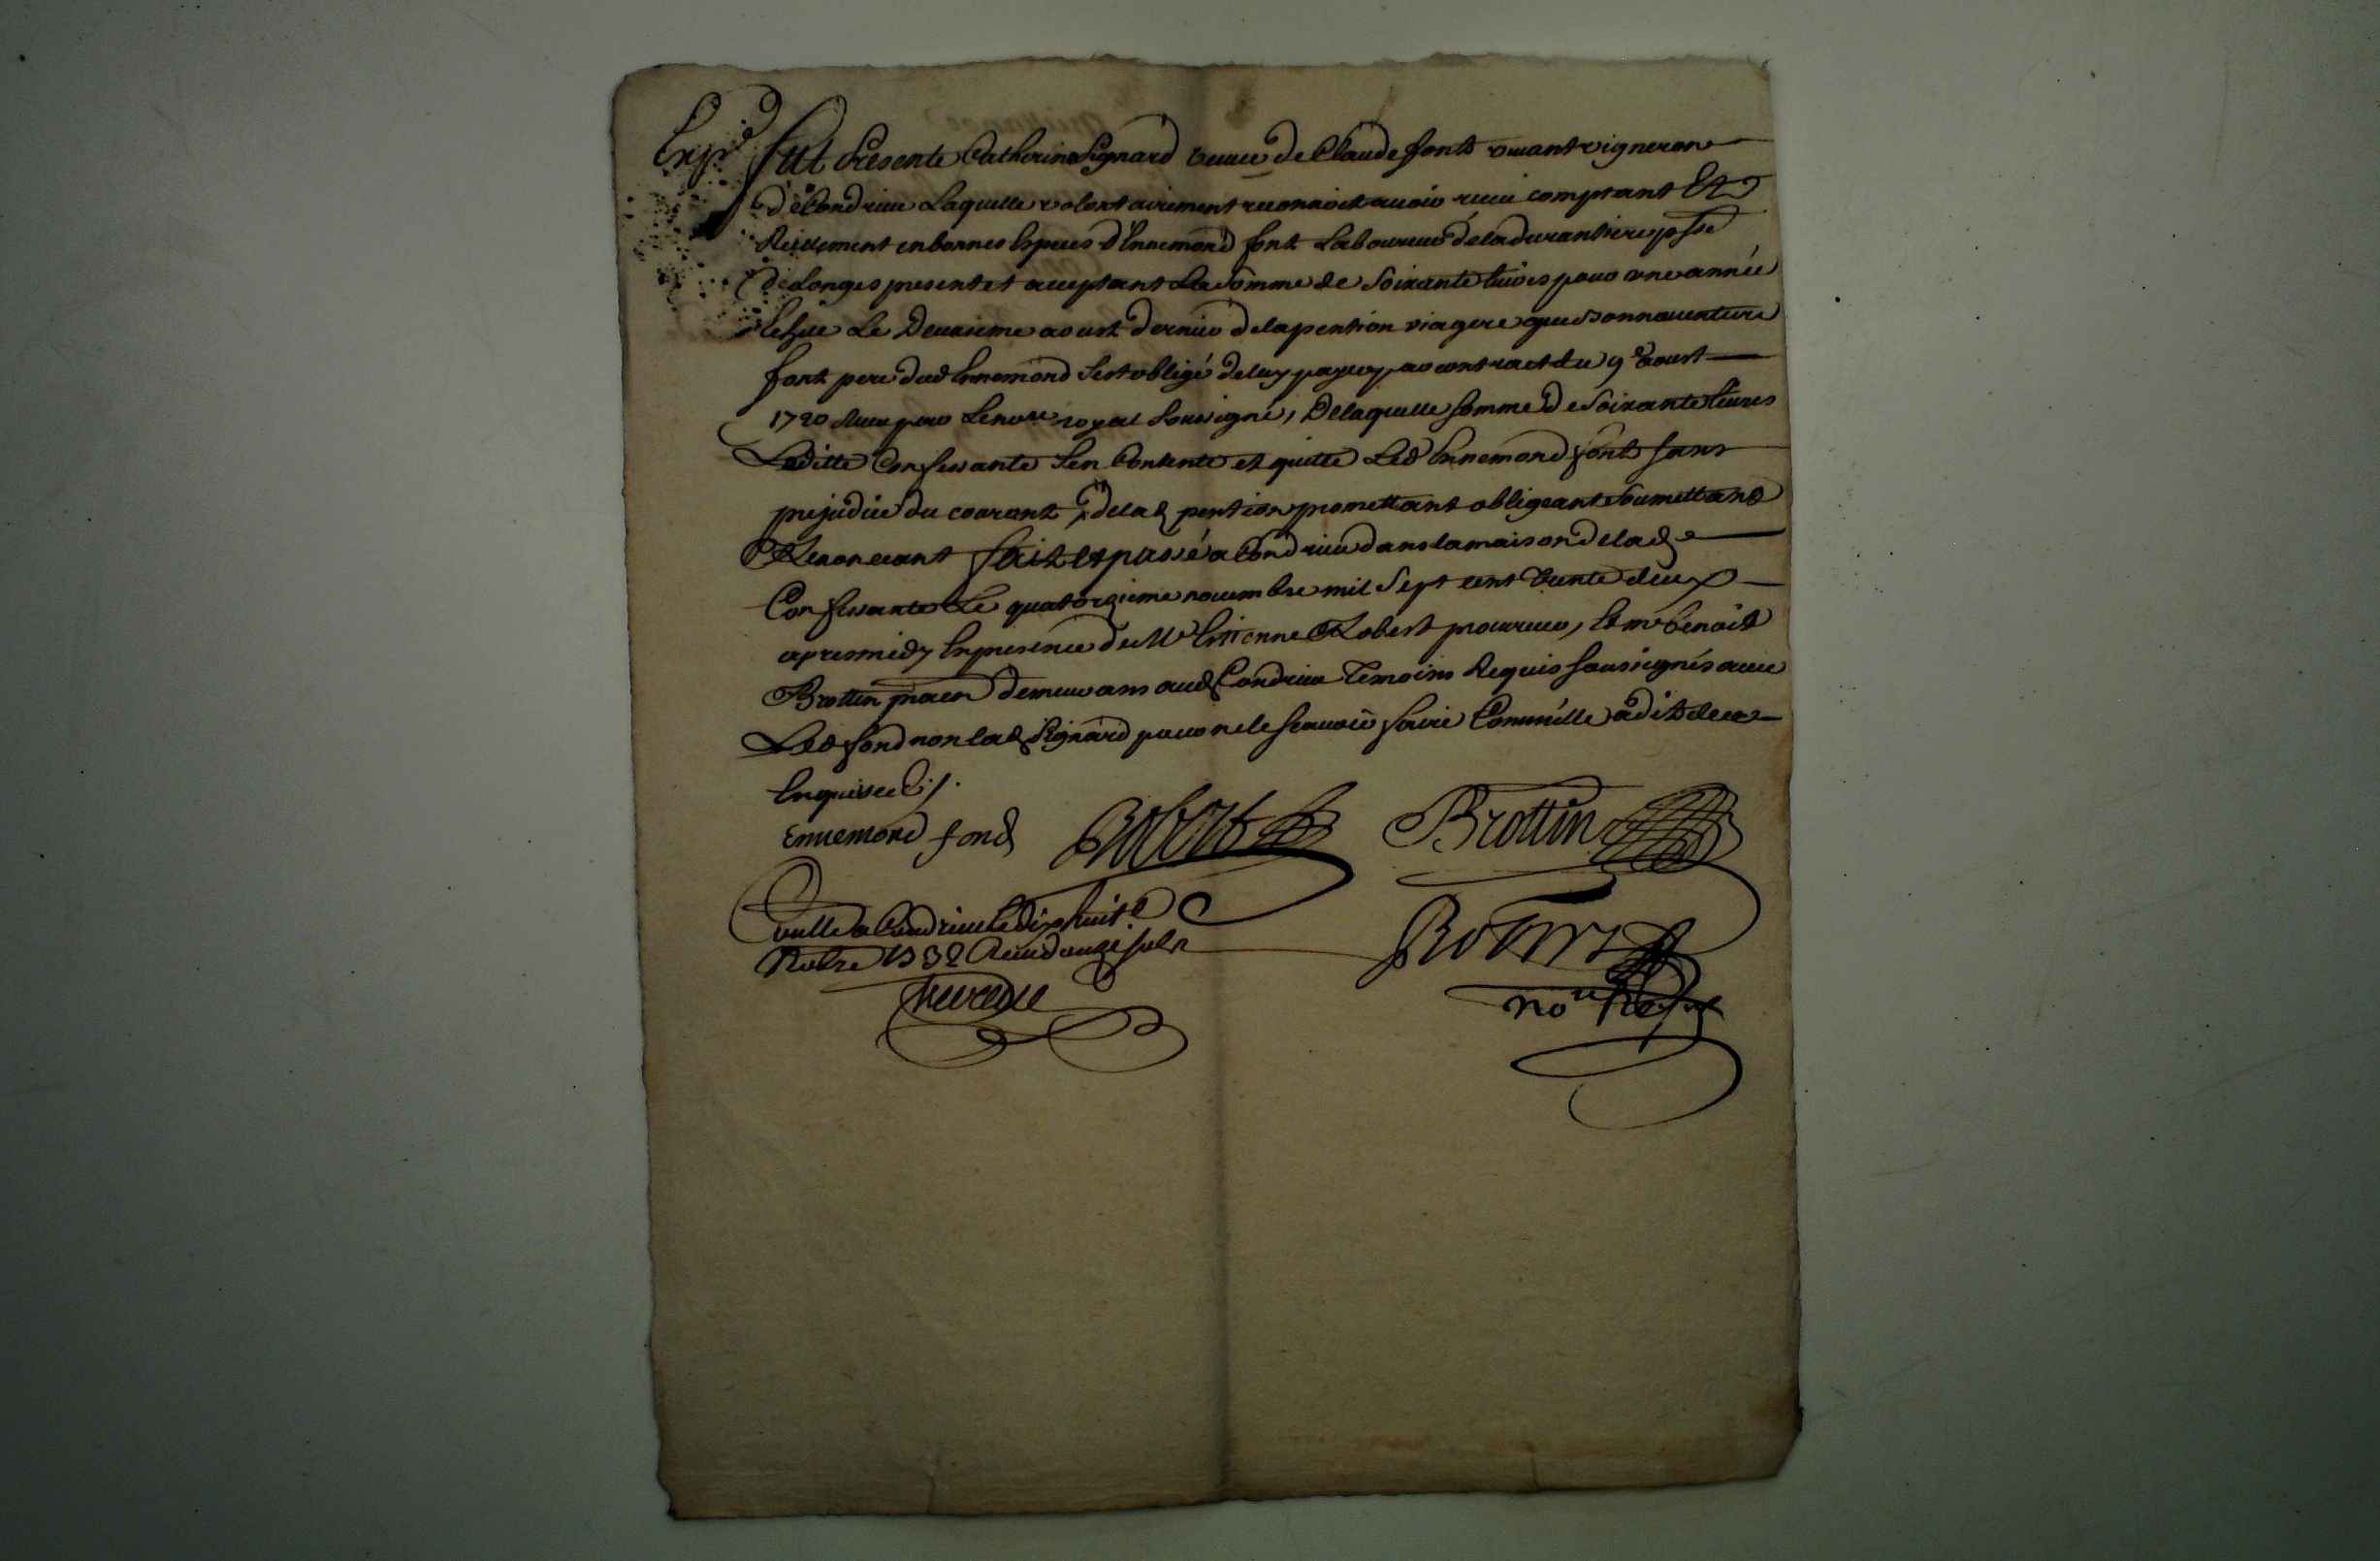 Exp.d fut Presente Catherine Pignard veuve de Claude font vivant vigneron
de Condrieu Laquelle volontairement reconnoit avoir receu comptant Et
Reellement en bonnes Especes d'Ennemond font Laboureur de la durantiere psse
de Longes present et acceptant La Somme de Soixante livres pour une année
Escheue Le Deuxieme aoust dernier de la pention viagere que Bonnaventure
font pere dud Ennemond Sest obligé de luy payer par contract du 9e aoust
1720 Receu par Le nore royal Soussigné, De laquelle somme de Soixante livres
Laditte Confessante Sen Contente et quitte Led Ennemond font sans
prejudice du courant de lad pention promettant obligeant Soumettant
Renoncant fait et passé a Condrieu dans la maison de lad
Confessante Le quatorzieme novembre mil Sept cent trente deux
apres midy En presence de Me Estienne Robert procureur, Et me benoist
Brottin pracn demeurans aud Condrieu Temoins Requis soussignés avec
Led fond non lad Pignard pour ne le scavoir faire Comm'elle a dit de ce
Enquise
Ennemond fond Robert Brottin
Conllé a Condrieu le dix huit e
Nobre 1732 Receu douze sols
nore